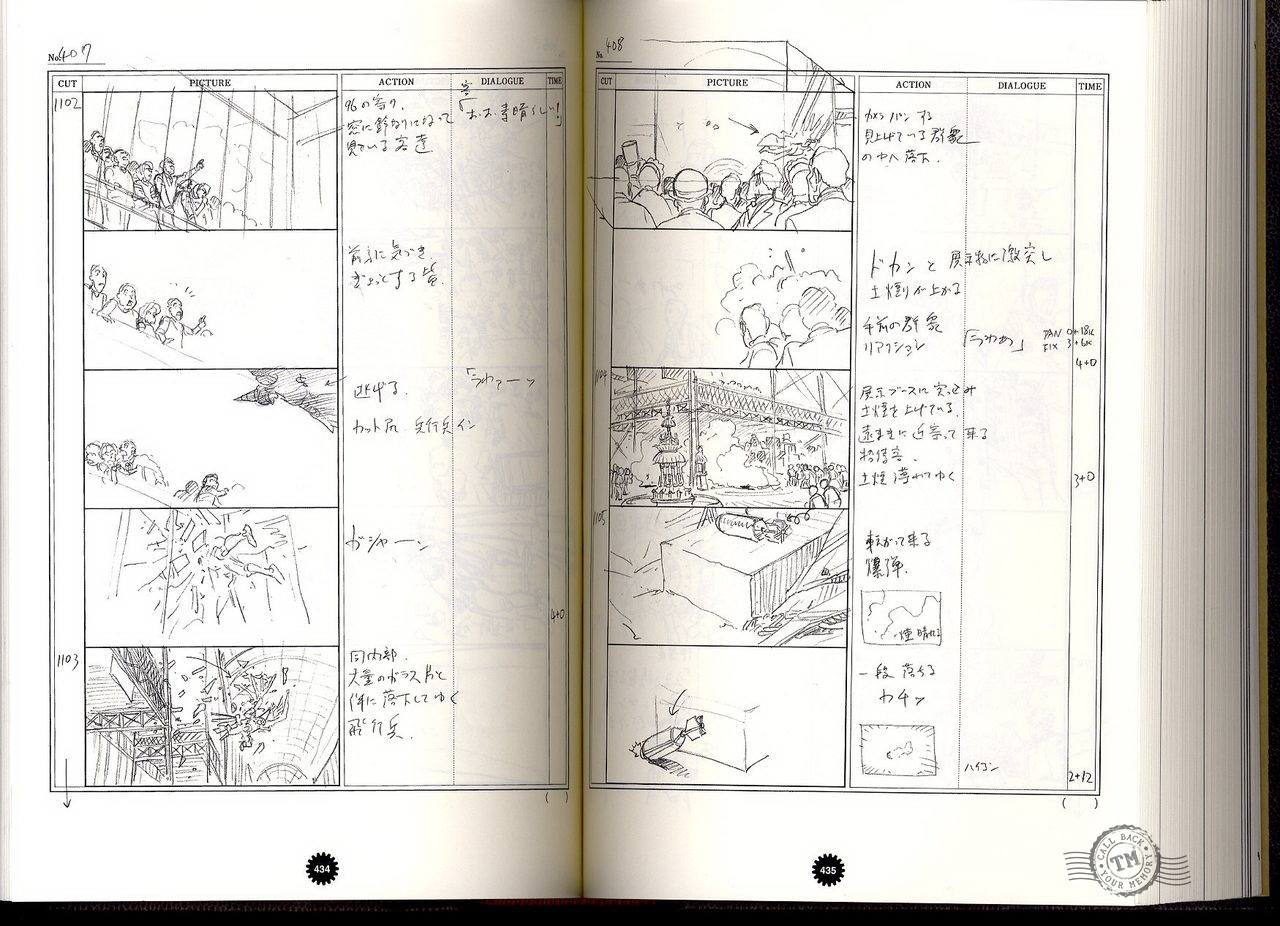 No. 407
CUT
PICTURE
ACTION
DIALOGUE
TIME
1102
96の寄り.
窓に鈴なりになって
見ている客達
客
「おお、素晴らしい!」
前方に気づき
ぎょっとする皆.
逃げる.
「うわァーッ
カット尻 飛行兵イン
ガシャーン
4+0
1103
同内部.
大量のガラス片と
伴に落下してゆく
飛行兵.
( )
434
No. 408
CUT
PICTURE
ACTION
DIALOGUE
TIME
カメラパンする
見上げている群衆
の中へ落下.
ドカンと展示物に激突し
土煙りが上がる
手前の群衆
リアクション
「うわぁ」
PAN 0+18K
FIX 3+6K
4+0
1104
展示ブースに突っ込み
土煙を上げている.
遠まきに近寄って来る
招待客.
土煙薄れてゆく
3+0
1105
転がって来る
爆弾.
煙晴れる
一段落ちる
カチッ
2+12
( )
435
CALL BACK
TM
YOUR MEMORY